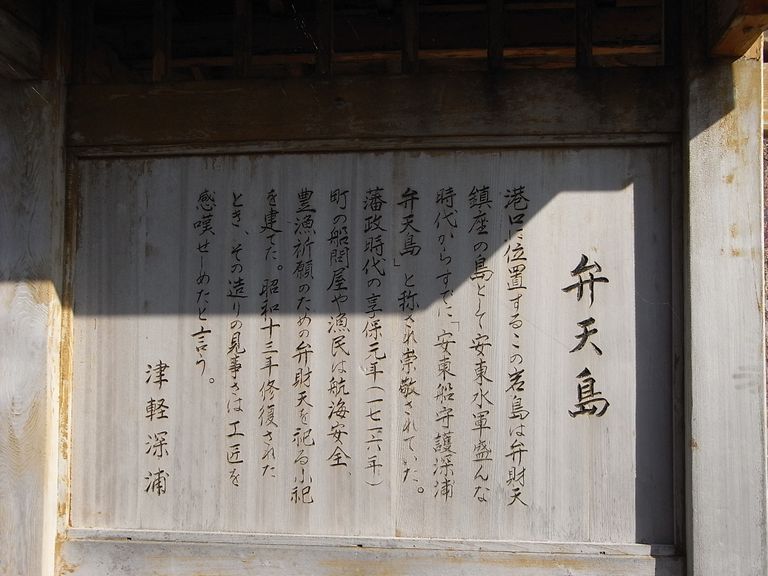 弁天島
港口に位置するこの岩島は弁財天
鎮座の島として安東水軍盛んな
時代からすでに「安東船守護深浦
弁天島」と称され崇敬されていた。
藩政時代の享保元年(一七一六年)
町の船問屋や漁民は航海安全、
豊漁祈願のための弁財天を祀る小祀
を建てた。昭和十三年修復された
とき、その造りの見事さは工匠を
感嘆せしめたと言う。
津軽深浦